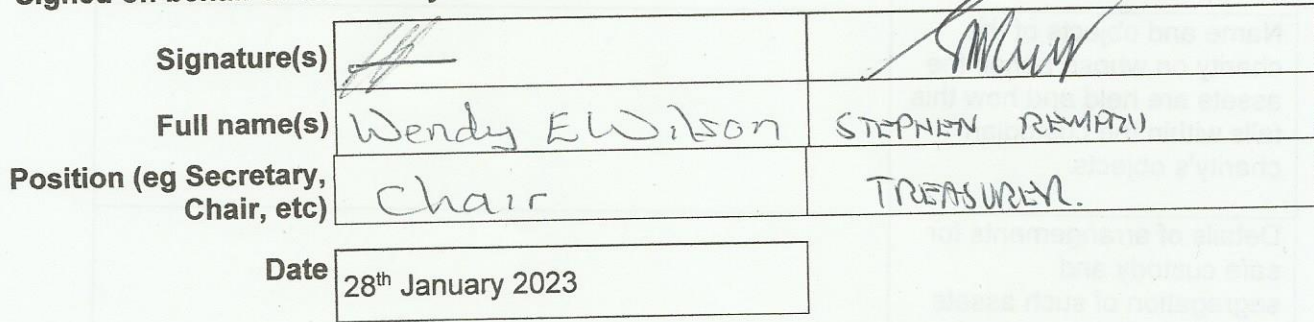 Signature(s)
Full name(s) Wendy E Wilson STEPHEN
Position (eg Secretary, Chair TREASURER.
Chair, etc)
Date 28th January 2023